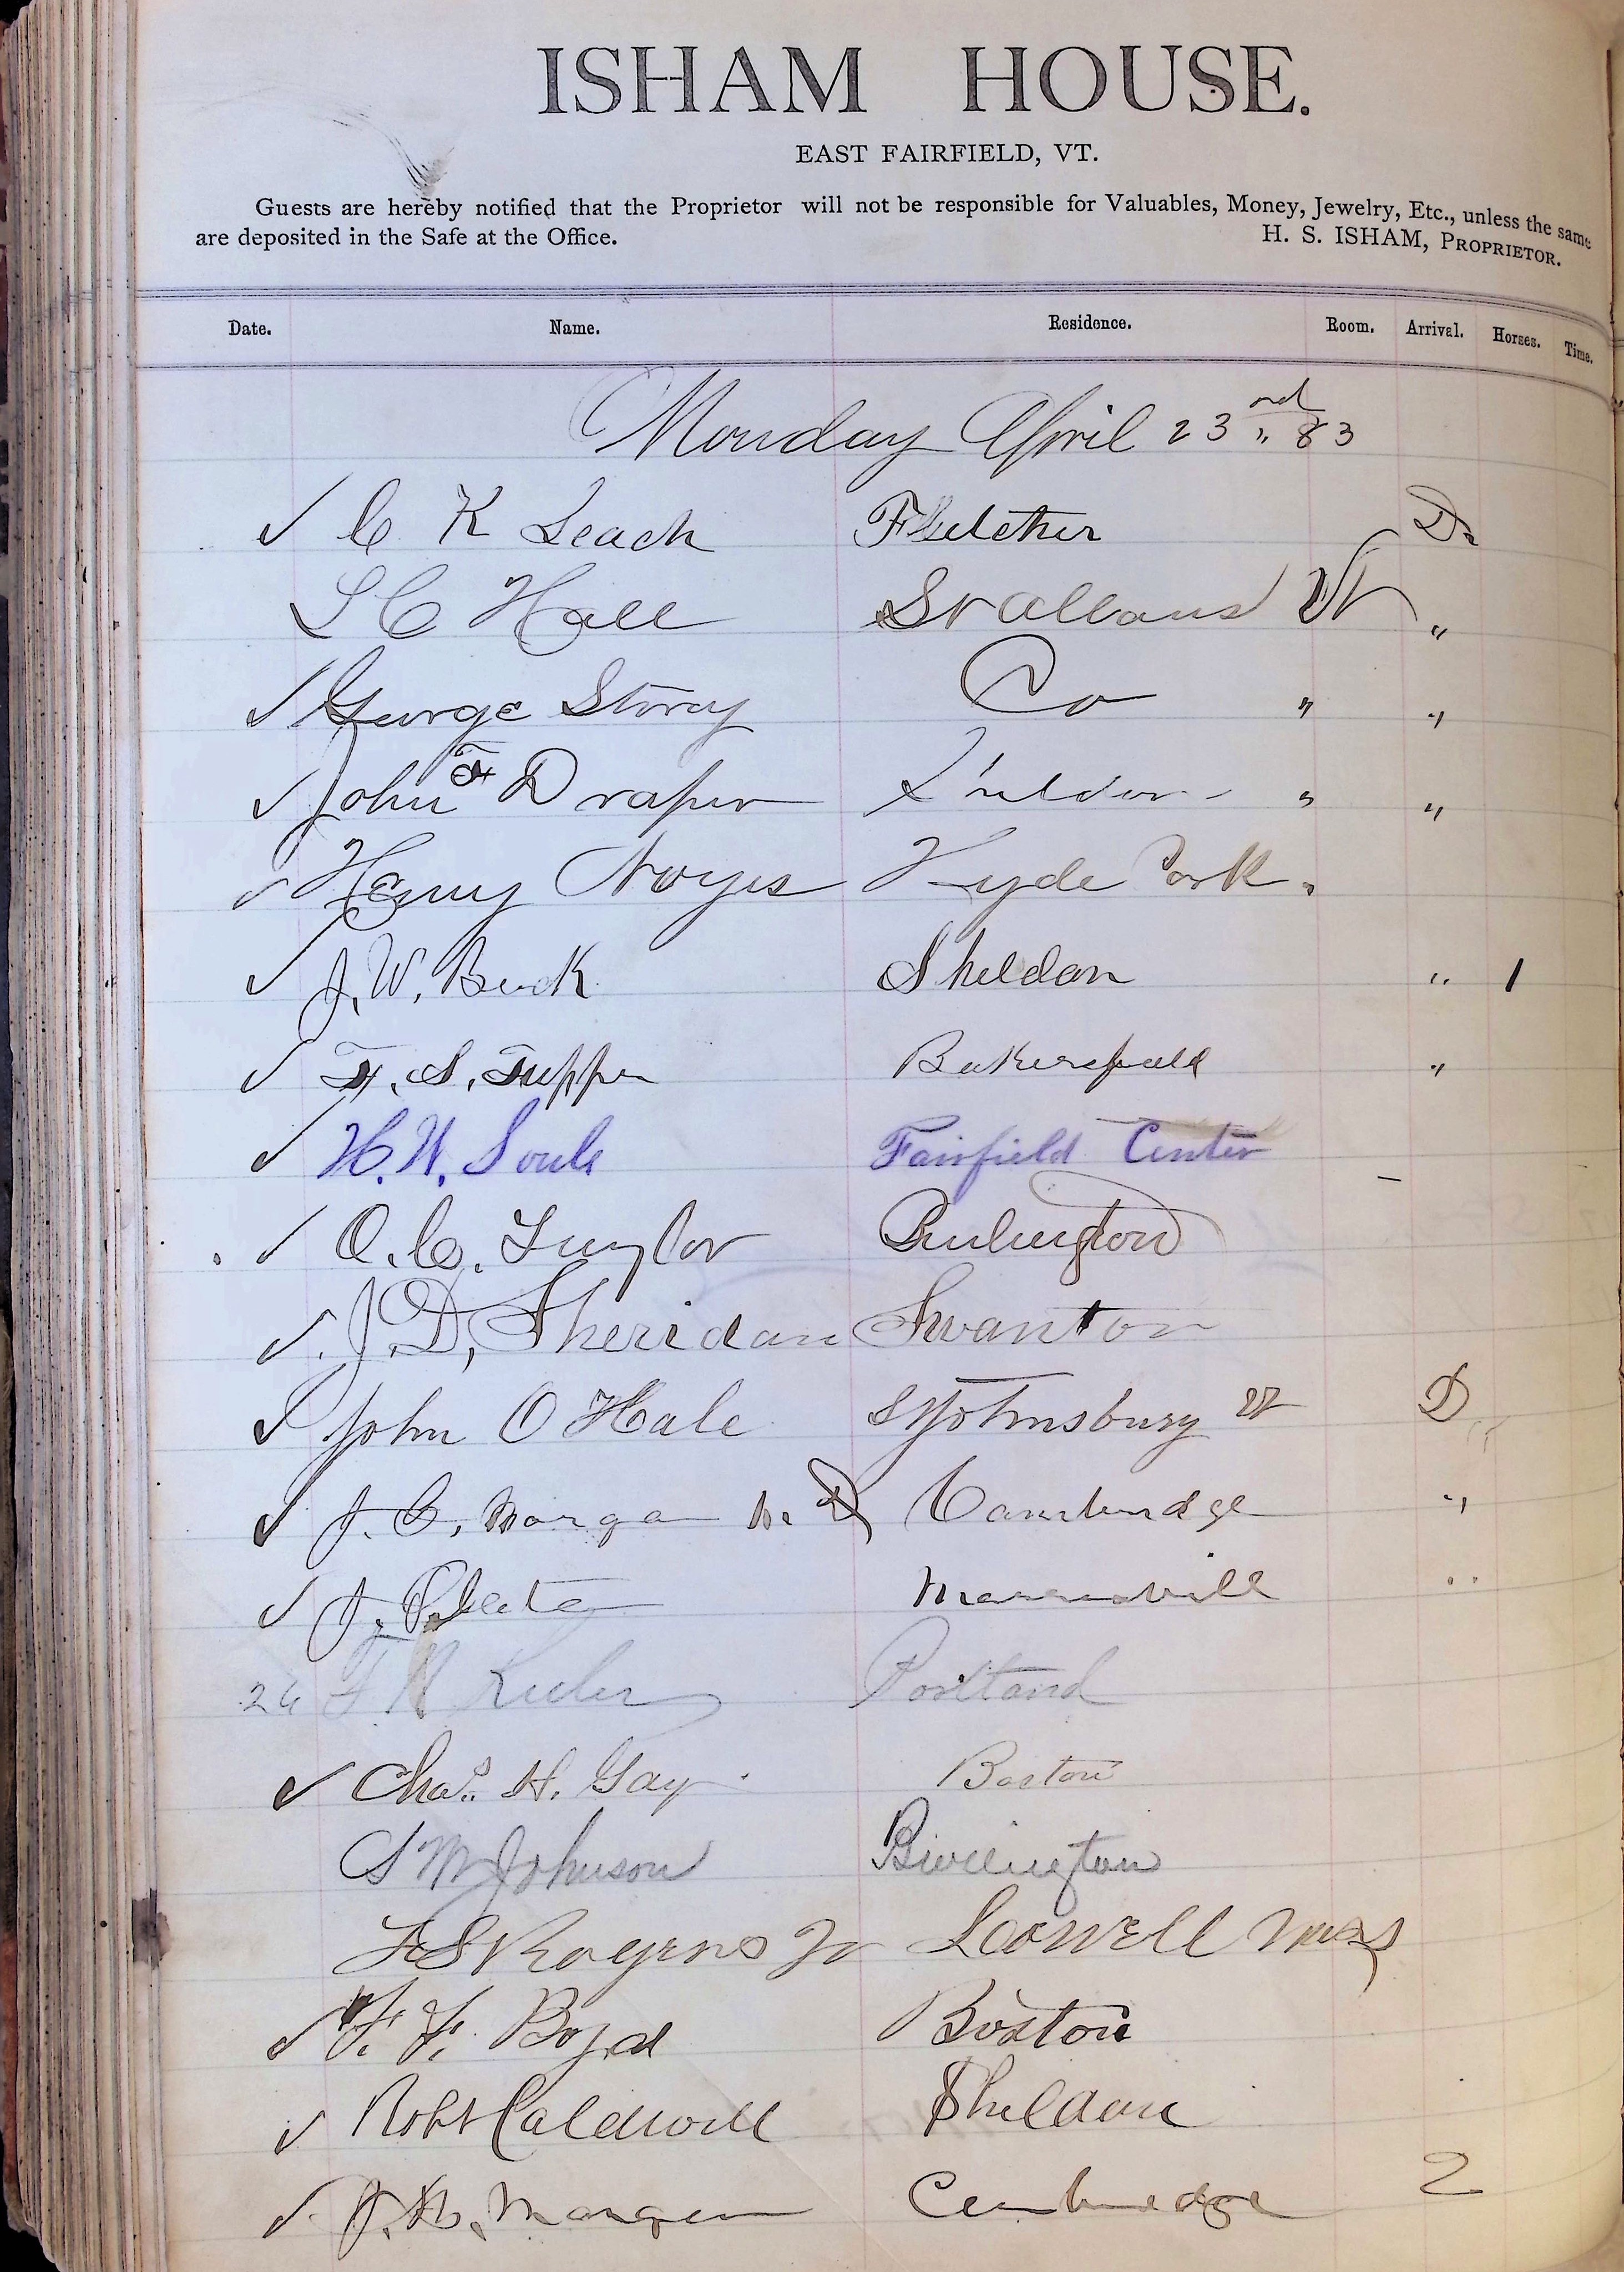 ISHAM HOUSE.
EAST FAIRFIELD, VT.
Guests are hereby notified that the Proprietor will not be responsible for Valuables, Money, Jewelry, Etc., unless the same
are deposited in the Safe at the Office.
H. S. ISHAM, PROPRIETOR.
Date. Name. Residence. Room. Arrival. Horses. Time.
Monday April 23rd " 83
✓ C K Leach Fletcher D
S C Hall St Albans Vt "
✓ George Story Co " "
✓ John F Draper Sheldon " "
✓ Henry Noyes Hyde Park.
✓ J. W. Buck Sheldon " 1
✓ F. S. Tupper Bakersfield "
✓ H. W. Soule Fairfield Center
✓ O. C. Taylor Burlington
✓ J. D. Sheridan Swanton
✓ John O Hale St Johnsbury Vt D
✓ J. C. Morgan M. D Cambridge "
✓ J. Morrisvill "
24 Portland
✓ Chas. H. Gay Boston
S M Johnson Burlington
Rogers Jr Lowell Mass
✓ F. F. Boyd Boston
✓ Robt Caldwell Sheldon
✓ J. M. Morgan Cambridge 2